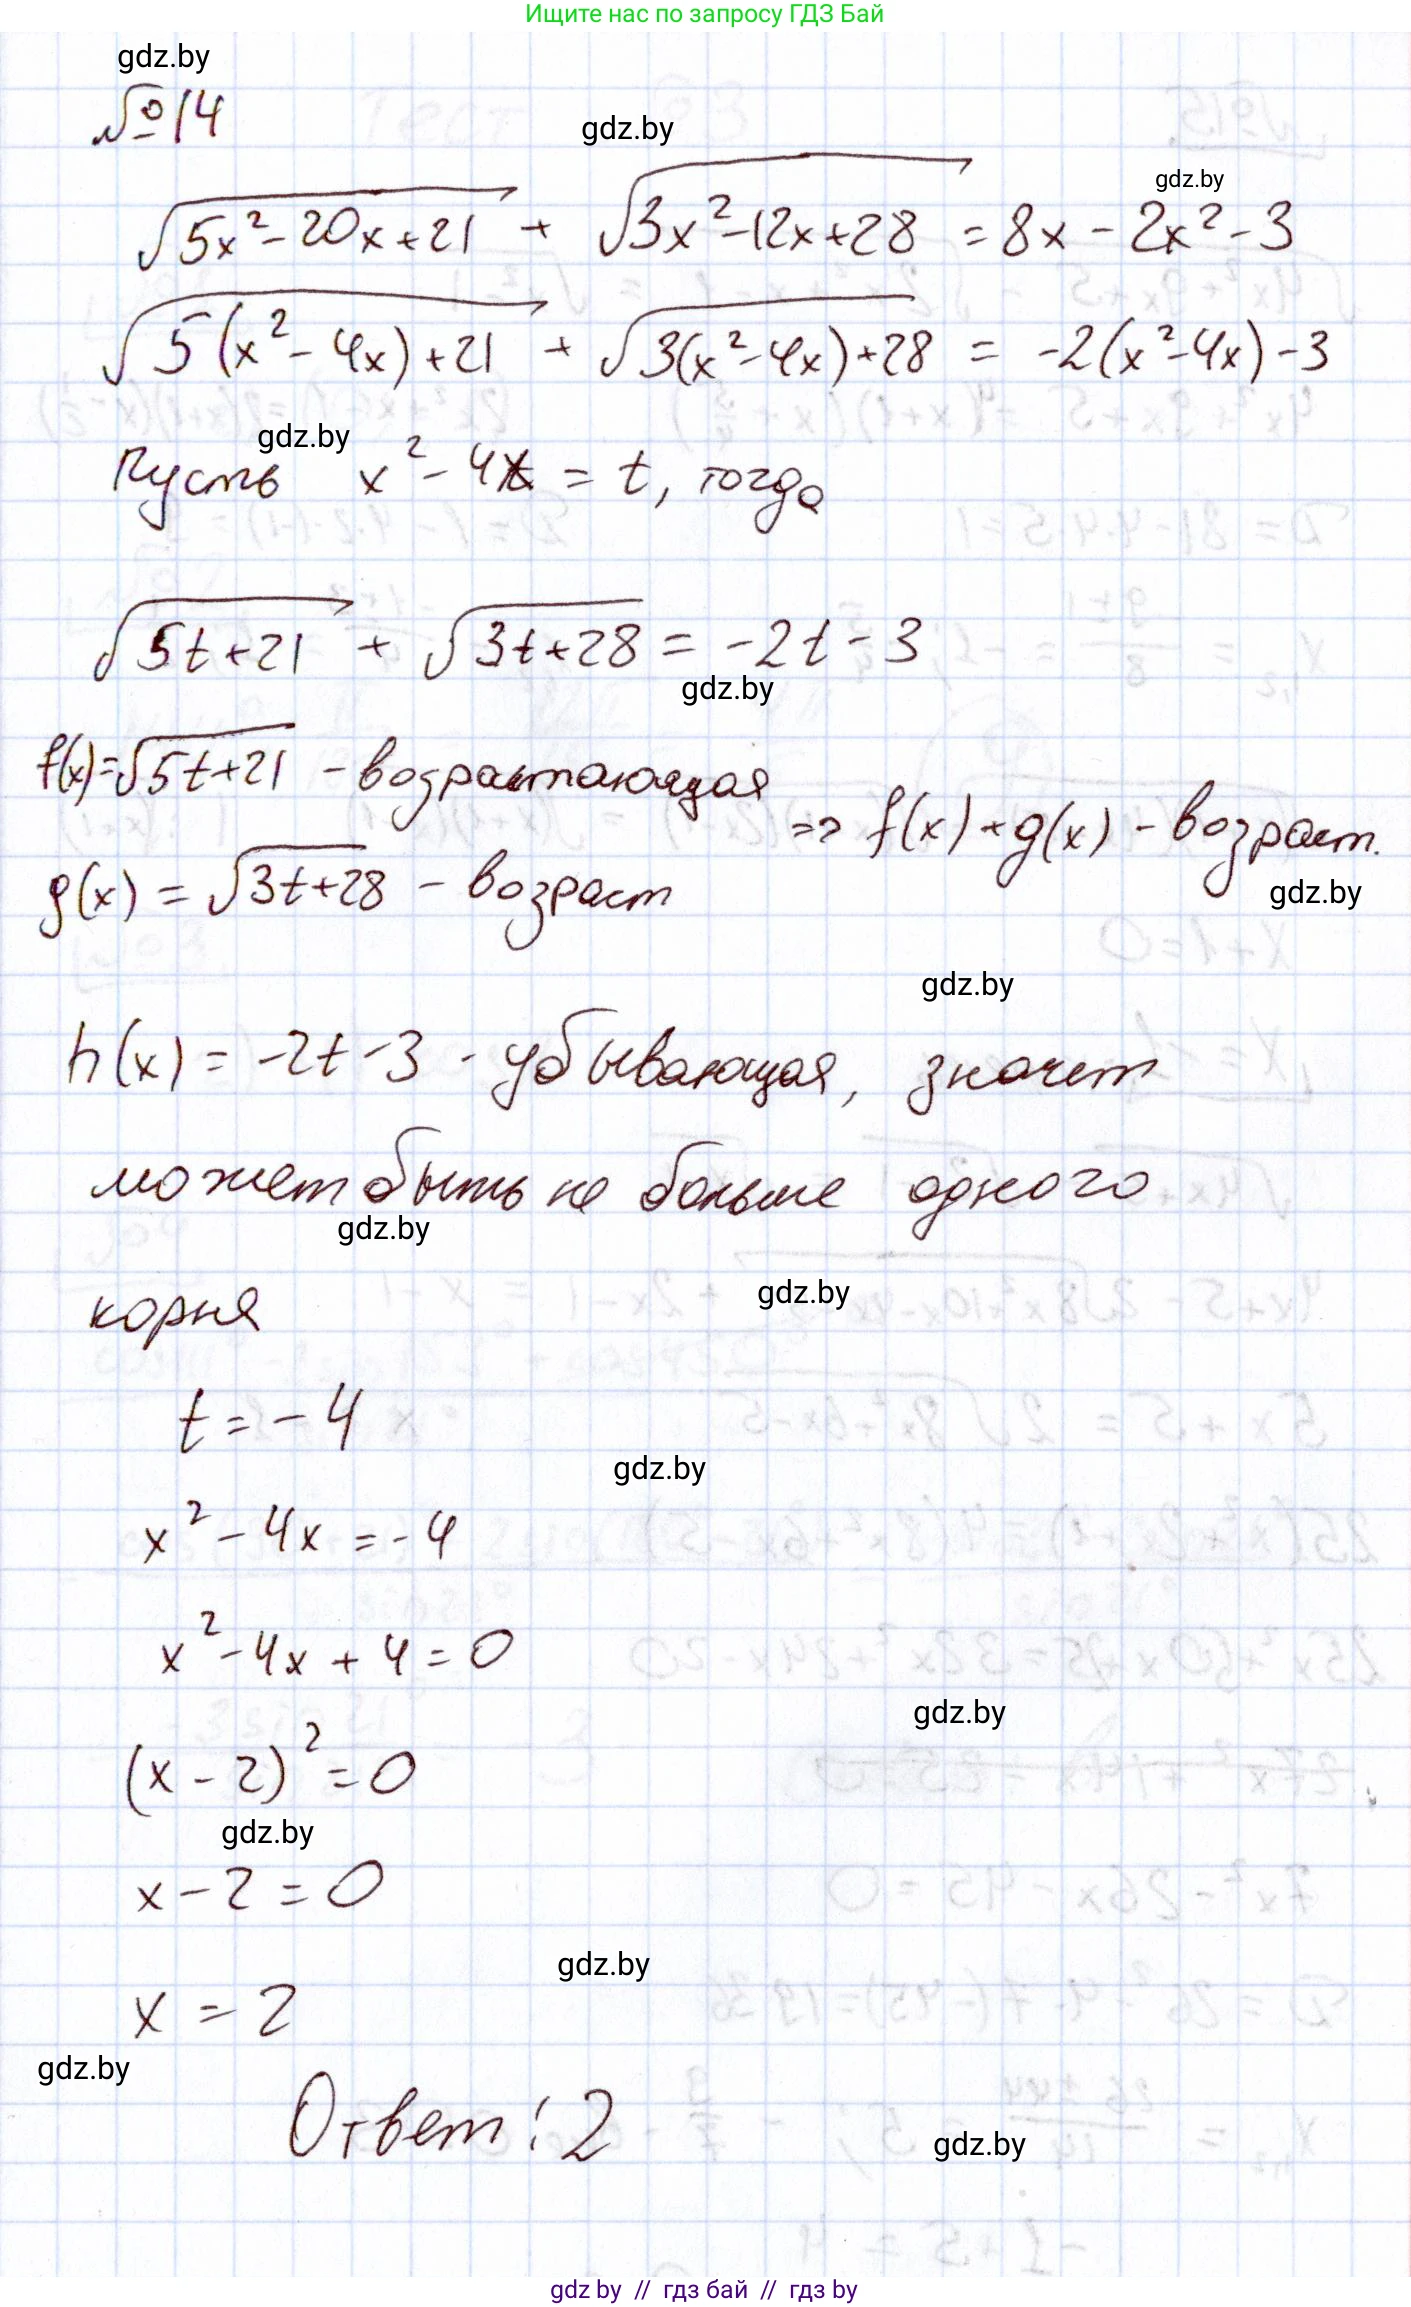 Ищите нас по запросу ГДЗ Бай
gdz.by
№14
gdz.by
gdz.by
√(5x² - 20x + 21) + √(3x² - 12x + 28) = 8x - 2x² - 3
√(5(x² - 4x) + 21) + √(3(x² - 4x) + 28) = -2(x² - 4x) - 3
gdz.by
Пусть x² - 4x = t, тогда
√(5t + 21) + √(3t + 28) = -2t - 3
gdz.by
f(x) = √(5t + 21) - возрастающая
=> f(x) + g(x) - возраст.
g(x) = √(3t + 28) - возраст
gdz.by
gdz.by
h(x) = -2t - 3 - убывающая, значит
может быть не больше одного
gdz.by
gdz.by
корня
t = -4
gdz.by
x² - 4x = -4
x² - 4x + 4 = 0
gdz.by
(x - 2)² = 0
gdz.by
x - 2 = 0
gdz.by
x = 2
gdz.by
Ответ: 2
gdz.by
gdz by // гдз бай // гдз by